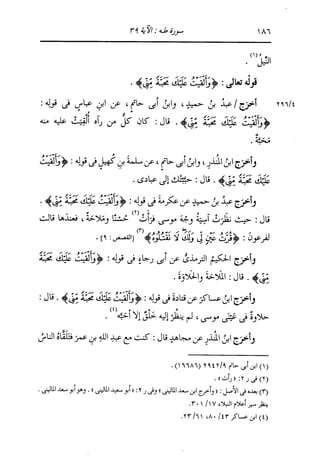 ١٨٦ سورة طه : الآية ٣٩
النِّيلُ(١).
قولُه تعالى : ﴿وَأَلْقَيْتُ عَلَيْكَ مَحَبَّةً مِّنِّي﴾ .
٢٩٦/٤ أخرَج / عبدُ بنُ حميدٍ، وابنُ أبى حاتمٍ، عن ابنِ عباسٍ فى قولِه :
﴿وَأَلْقَيْتُ عَلَيْكَ مَحَبَّةً مِّنِّي﴾ . قال : كان كلُّ مَن رآه أُلقِيت عليه منه
مَحَبَّةٌ .
وأخرَج ابنُ المنذرِ، وابنُ أبى حاتمٍ، عن سلمةَ بنِ كُهيلٍ فى قولِه : ﴿وَأَلْقَيْتُ
عَلَيْكَ مَحَبَّةً مِّنِّي﴾ . قال : حبَّبتُك إلى عبادى .
وأخرَج عبدُ بنُ حميدٍ عن عكرمةَ فى قولِه : ﴿وَأَلْقَيْتُ عَلَيْكَ مَحَبَّةً مِّنِّي﴾ .
قال : حيث نظَرتْ آسيةُ وجهَ موسى فرأت(٢) حُسنًا ومَلاحةً، فعندَها قالت
لفرعونَ : ﴿قُرَّتُ عَيْنٍ لِّي وَلَكَ لَا تَقْتُلُوهُ﴾(٣) [القصص : ٩] .
وأخرَج الحكيمُ الترمذىُّ عن أبى رجاءٍ فى قولِه : ﴿وَأَلْقَيْتُ عَلَيْكَ مَحَبَّةً
مِّنِّي﴾ . قال : الملاحةَ والحلاوةَ .
وأخرَج ابنُ عساكرَ عن قتادةَ فى قولِه : ﴿وَأَلْقَيْتُ عَلَيْكَ مَحَبَّةً مِّنِّي﴾ . قال :
حلاوةٌ فى عينَى موسى، لم ينظُرْ إليه خَلْقٌ إلا أحبَّه(٤) .
وأخرَج ابنُ المنذرِ عن مجاهدٍ قال : كنت مع عبدِ اللهِ بنِ عمرَ فتلقَّاه الناسُ
(١) ابن أبى حاتم ٢٩٤٢/٩ (١٦٦٨٦) .
(٢) فى ر ٢ : « رأت » .
(٣) بعده فى الأصل : « وأخرج ابن سعد المالينى » وفى ر ٢ : « أبو سعيد المالينى » . وهو أبو سعد المالينى .
ينظر سير أعلام النبلاء ٣٠١/١٧ .
(٤) ابن عساكر ٨٠/٤٣ ، ٢٣/٦١ .